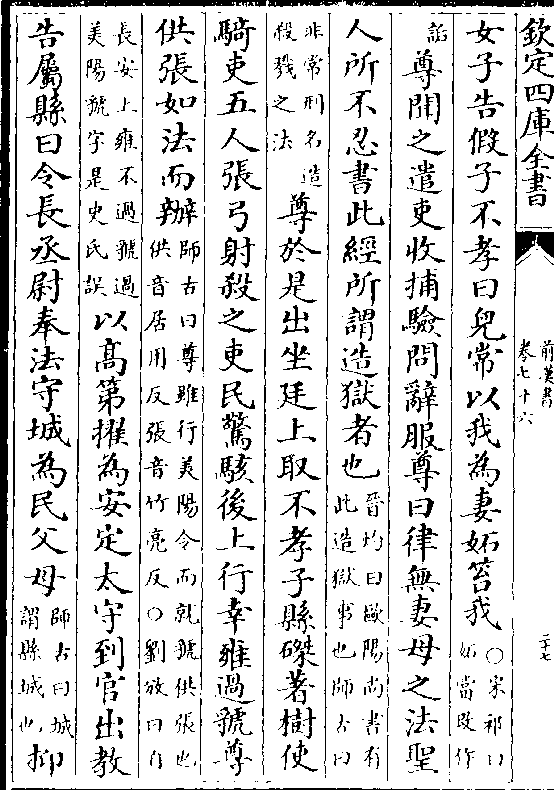 欽定四庫全書
前漢書
卷七十六
二十七
女子告假子不孝曰兒常以我為妻妬笞我
○宋祁曰
妬當改作
詬
尊聞之遣吏收捕驗問辭服尊曰律無妻母之法聖
人所不忍書此經所謂造獄者也
晉灼曰歐陽尚書有
此造獄事也師古曰
非常刑名造
殺戮之法
尊於是出坐廷上取不孝子縣磔著樹使
騎吏五人張弓射殺之吏民驚駭後上行幸雍過虢尊
供張如法而辦
師古曰尊雖行美陽令而就虢供張也
供音居用反張音竹亮反○劉攽曰自
長安上雍不過虢過
美陽虢字是史氏誤
以高第擢為安定太守到官出教
告屬縣曰令長丞尉奉法守城為民父母
師古曰城
謂縣城也
抑